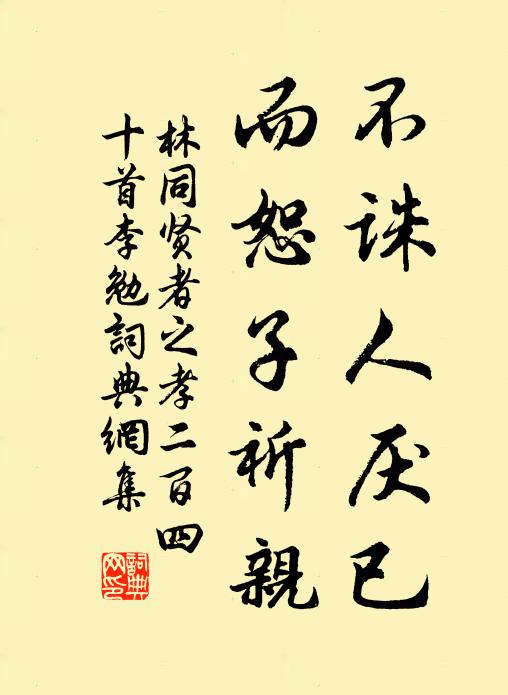 不诛人厌已
而恕子祈親
林同贤者之孝二百四
十首李勉詞典網集
詞典
网印